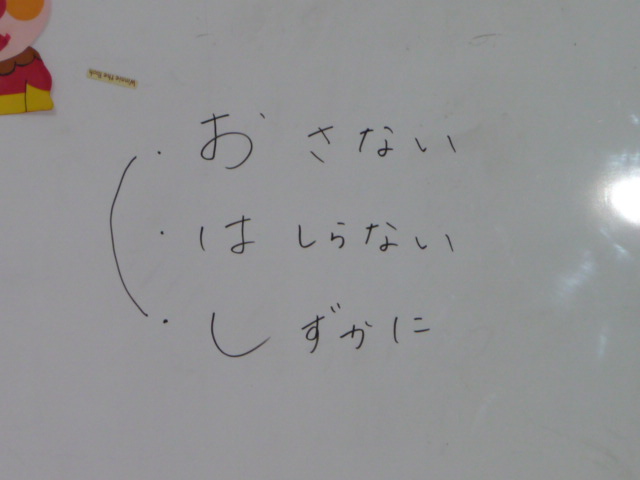 ・お さない
・は しらない
・し ずかに